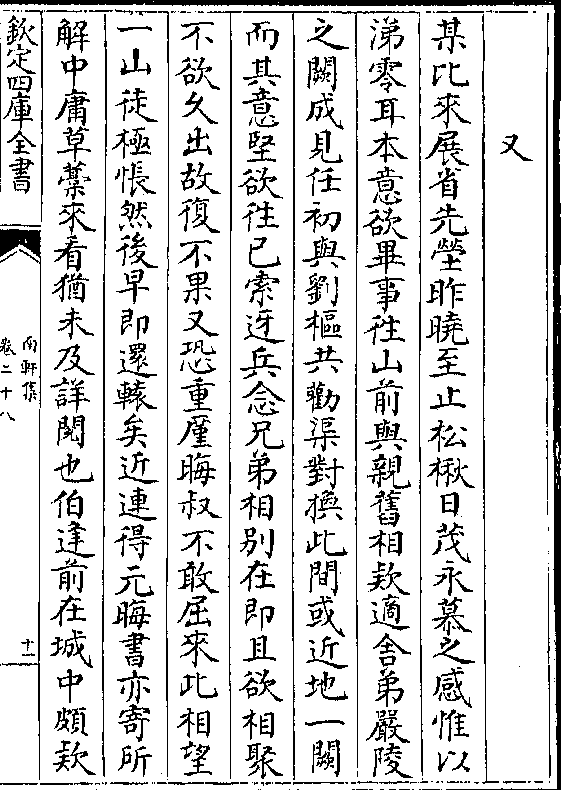 又
某比來展省先塋昨曉至止松楸日茂永慕之感惟以
涕零耳本意欲畢事往山前與親舊相欵適舍弟嚴陵
之闕成見任初與劉樞共勸渠對換此間或近地一闕
而其意堅欲往已索迓兵念兄弟相别在即且欲相聚
不欲久出故復不果又恐重廑晦叔不敢屈來此相望
一山徒極悵然後早即還轅矣近連得元晦書亦寄所
解中庸草藁來看猶未及詳閲也伯逢前在城中頗欵
欽定四庫全書
南軒集
卷二十八
十一